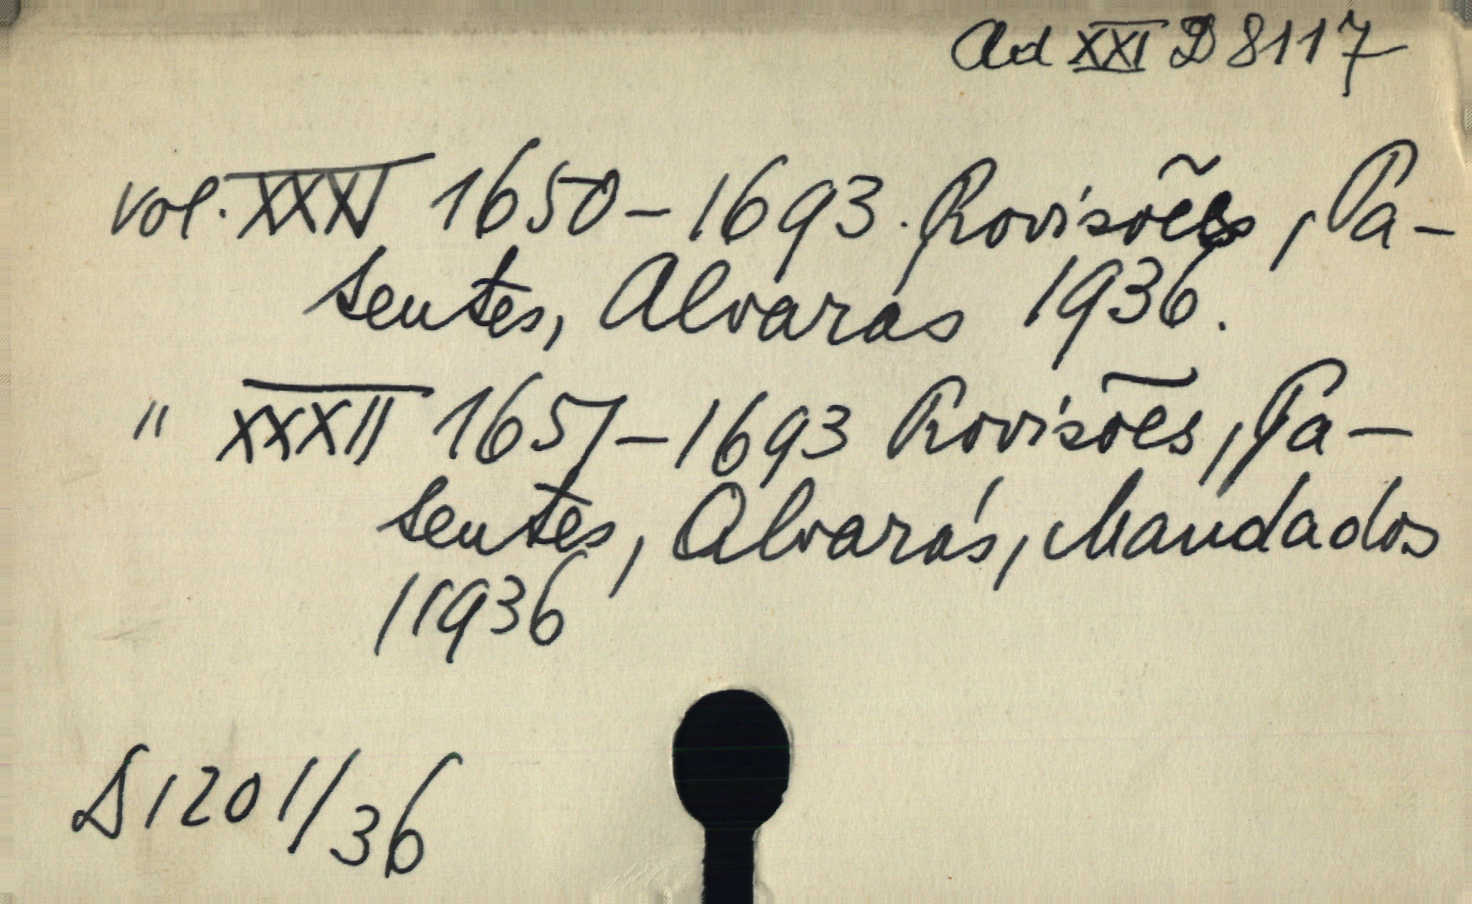 Ad XXI D 8117
vol. XXXI 1650-1693. Provisões, Pa-
tentes, Alvarás 1936.
" XXXII 1651-1693 Provisões, Pa-
tentes, Alvarás, Mandados
1936
S 1201/36